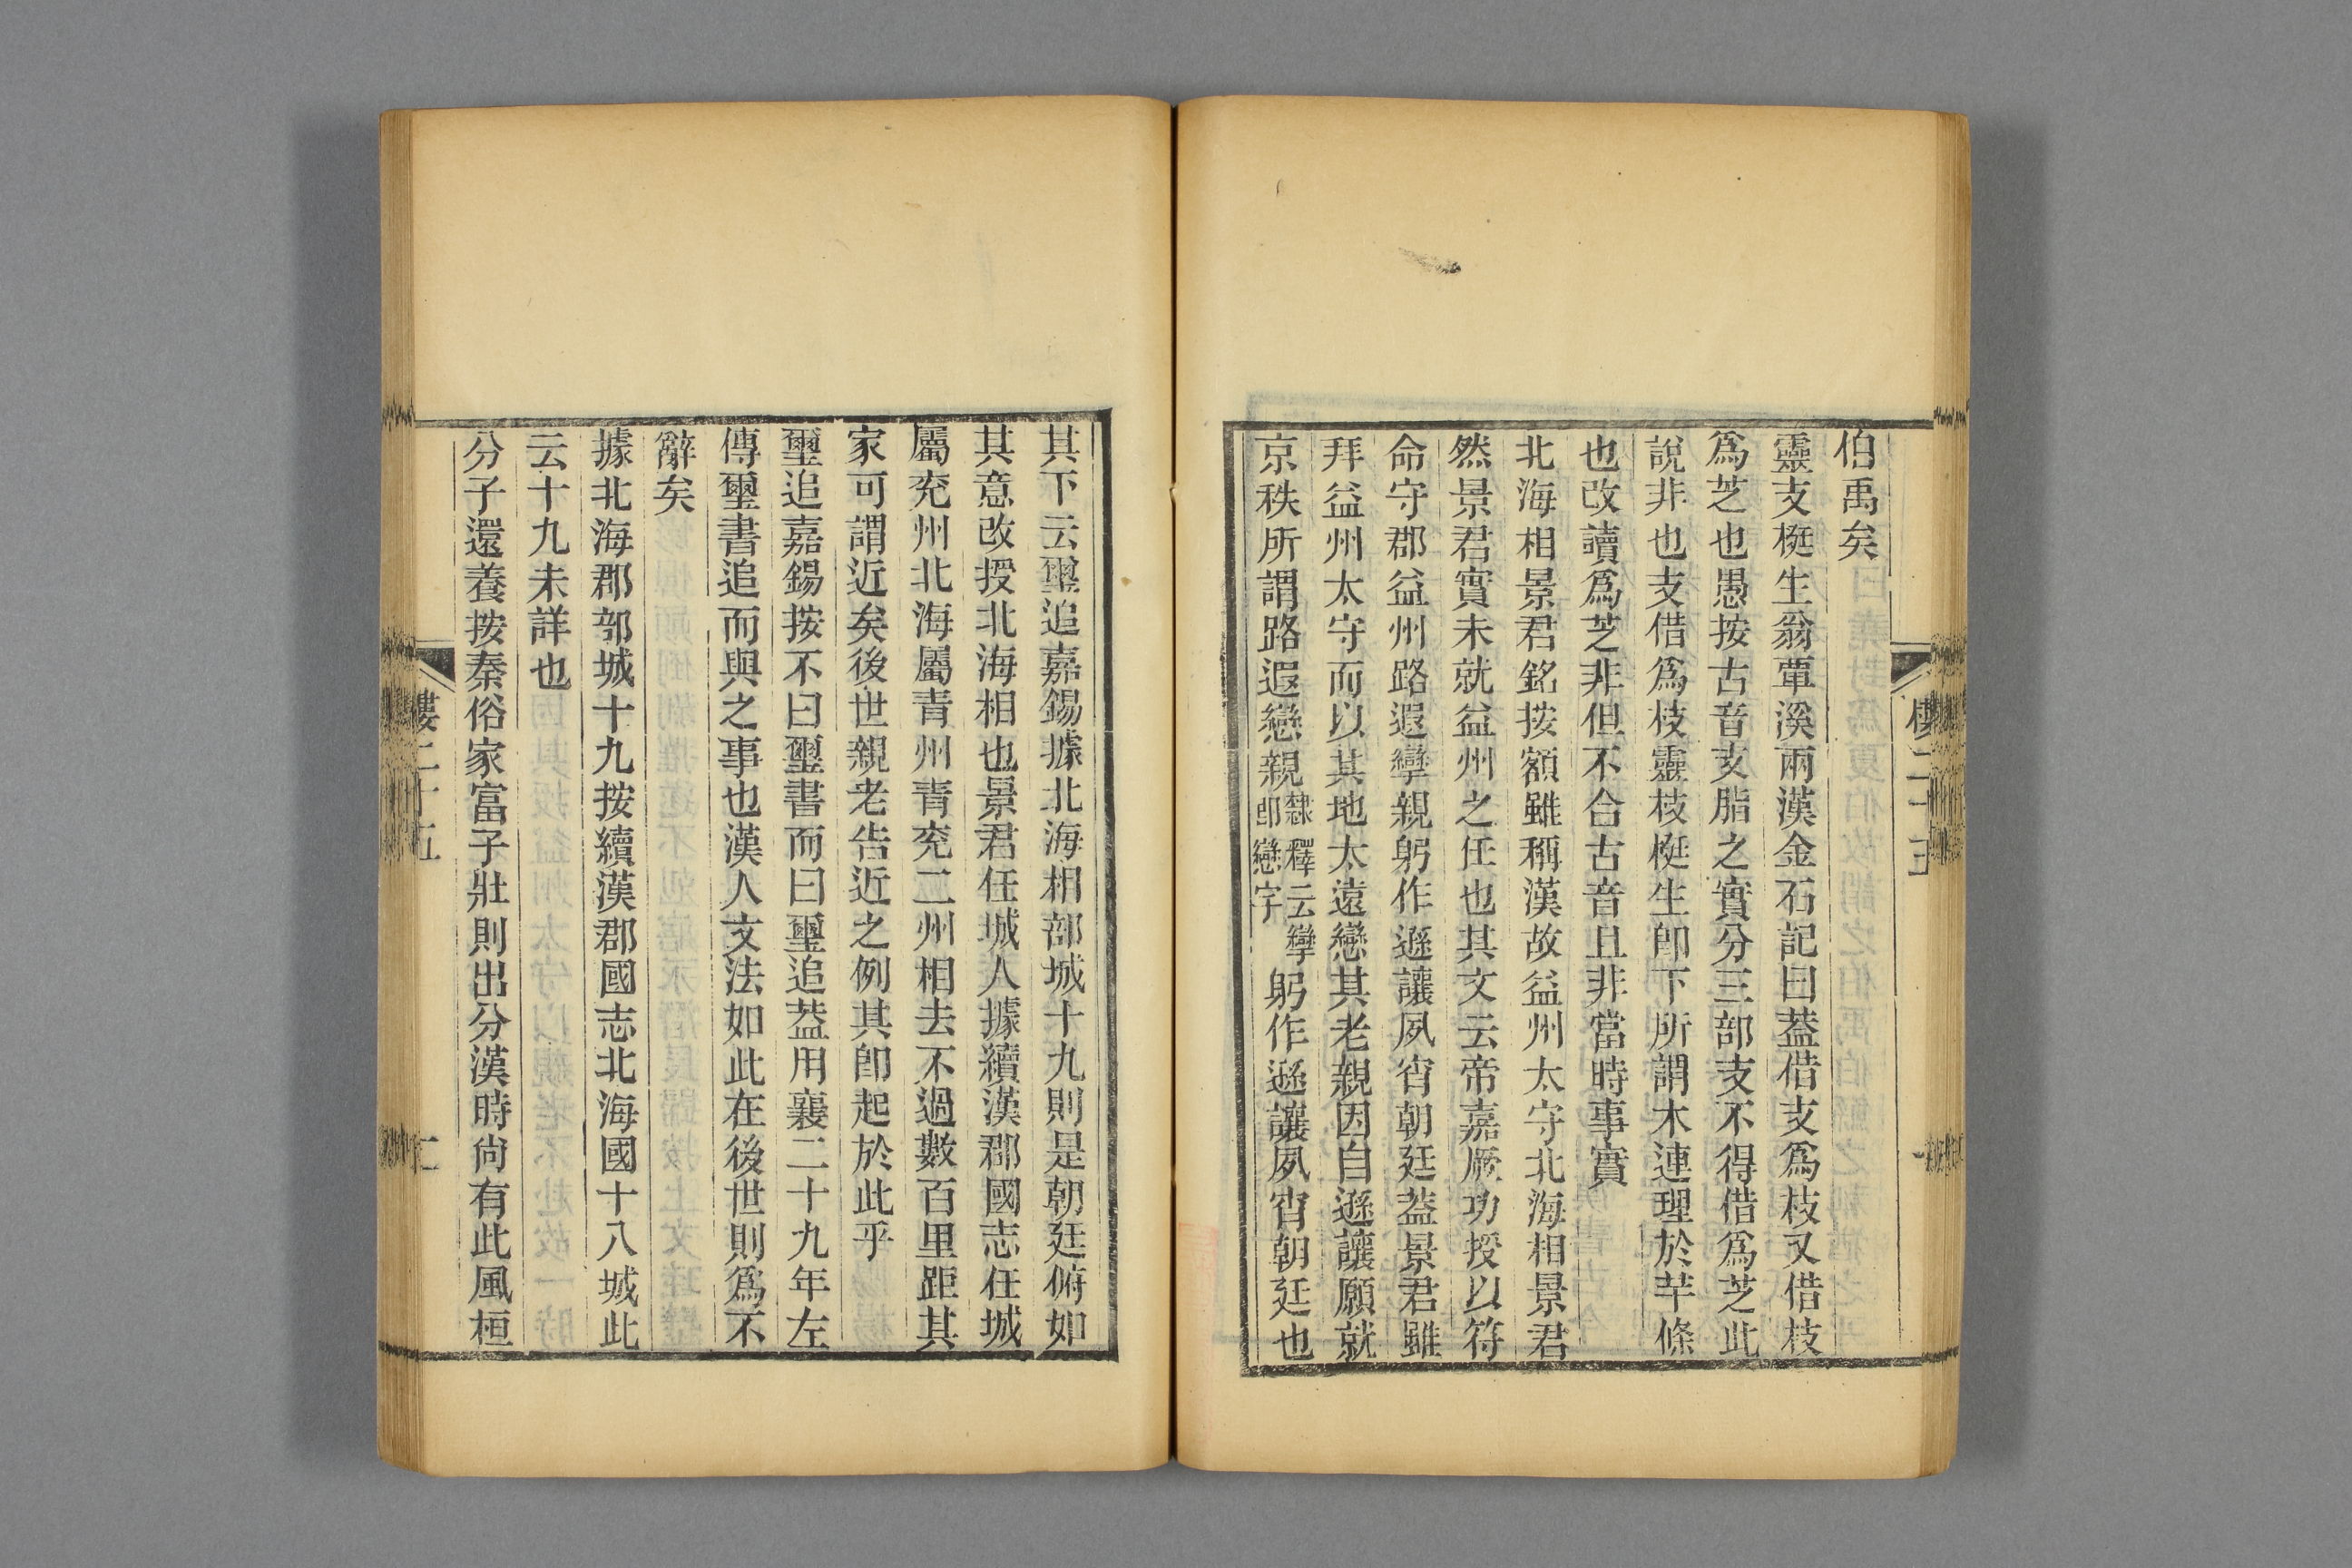 伯禹矣
靈支梃生翁覃溪兩漢金石記曰葢借支爲枝又借枝
爲芝也愚按古音支脂之實分三部支不得借爲芝此
說非也支借爲枝靈枝梃生卽下所謂木連理於芊條
也改讀爲芝非但不合古音且非當時事實
北海相景君銘按額雖稱漢故益州太守北海相景君
然景君實未就益州之任也其文云帝嘉厥功授以符
命守郡益州路遐攣親躬作遜讓夙宵朝廷葢景君雖
拜益州太守而以其地太遠戀其老親因自遜讓願就
京秩所謂路遐戀親隸釋云攣卽戀字躬作遜讓夙宵朝廷也
其下云璽追嘉錫據北海相部城十九則是朝廷俯如
其意改授北海相也景君任城人據續漢郡國志任城
屬兖州北海屬青州青兖二州相去不過數百里距其
家可謂近矣後世親老告近之例其卽起於此乎
璽追嘉錫按不曰璽書而曰璽追葢用襄二十九年左
傳璽書追而與之事也漢人文法如此在後世則爲不
辭矣
據北海郡部城十九按續漢郡國志北海國十八城此
云十九未詳也
分子還養按秦俗家富子壯則出分漢時尙有此風桓
樓二十五
二